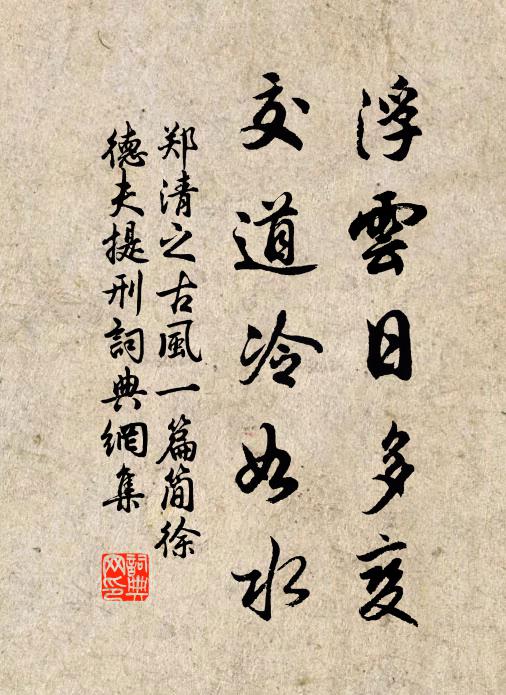 浮雲日多变
交道冷如水
郑清之古風一篇简徐
德夫提刑詞典網集
詞典网印